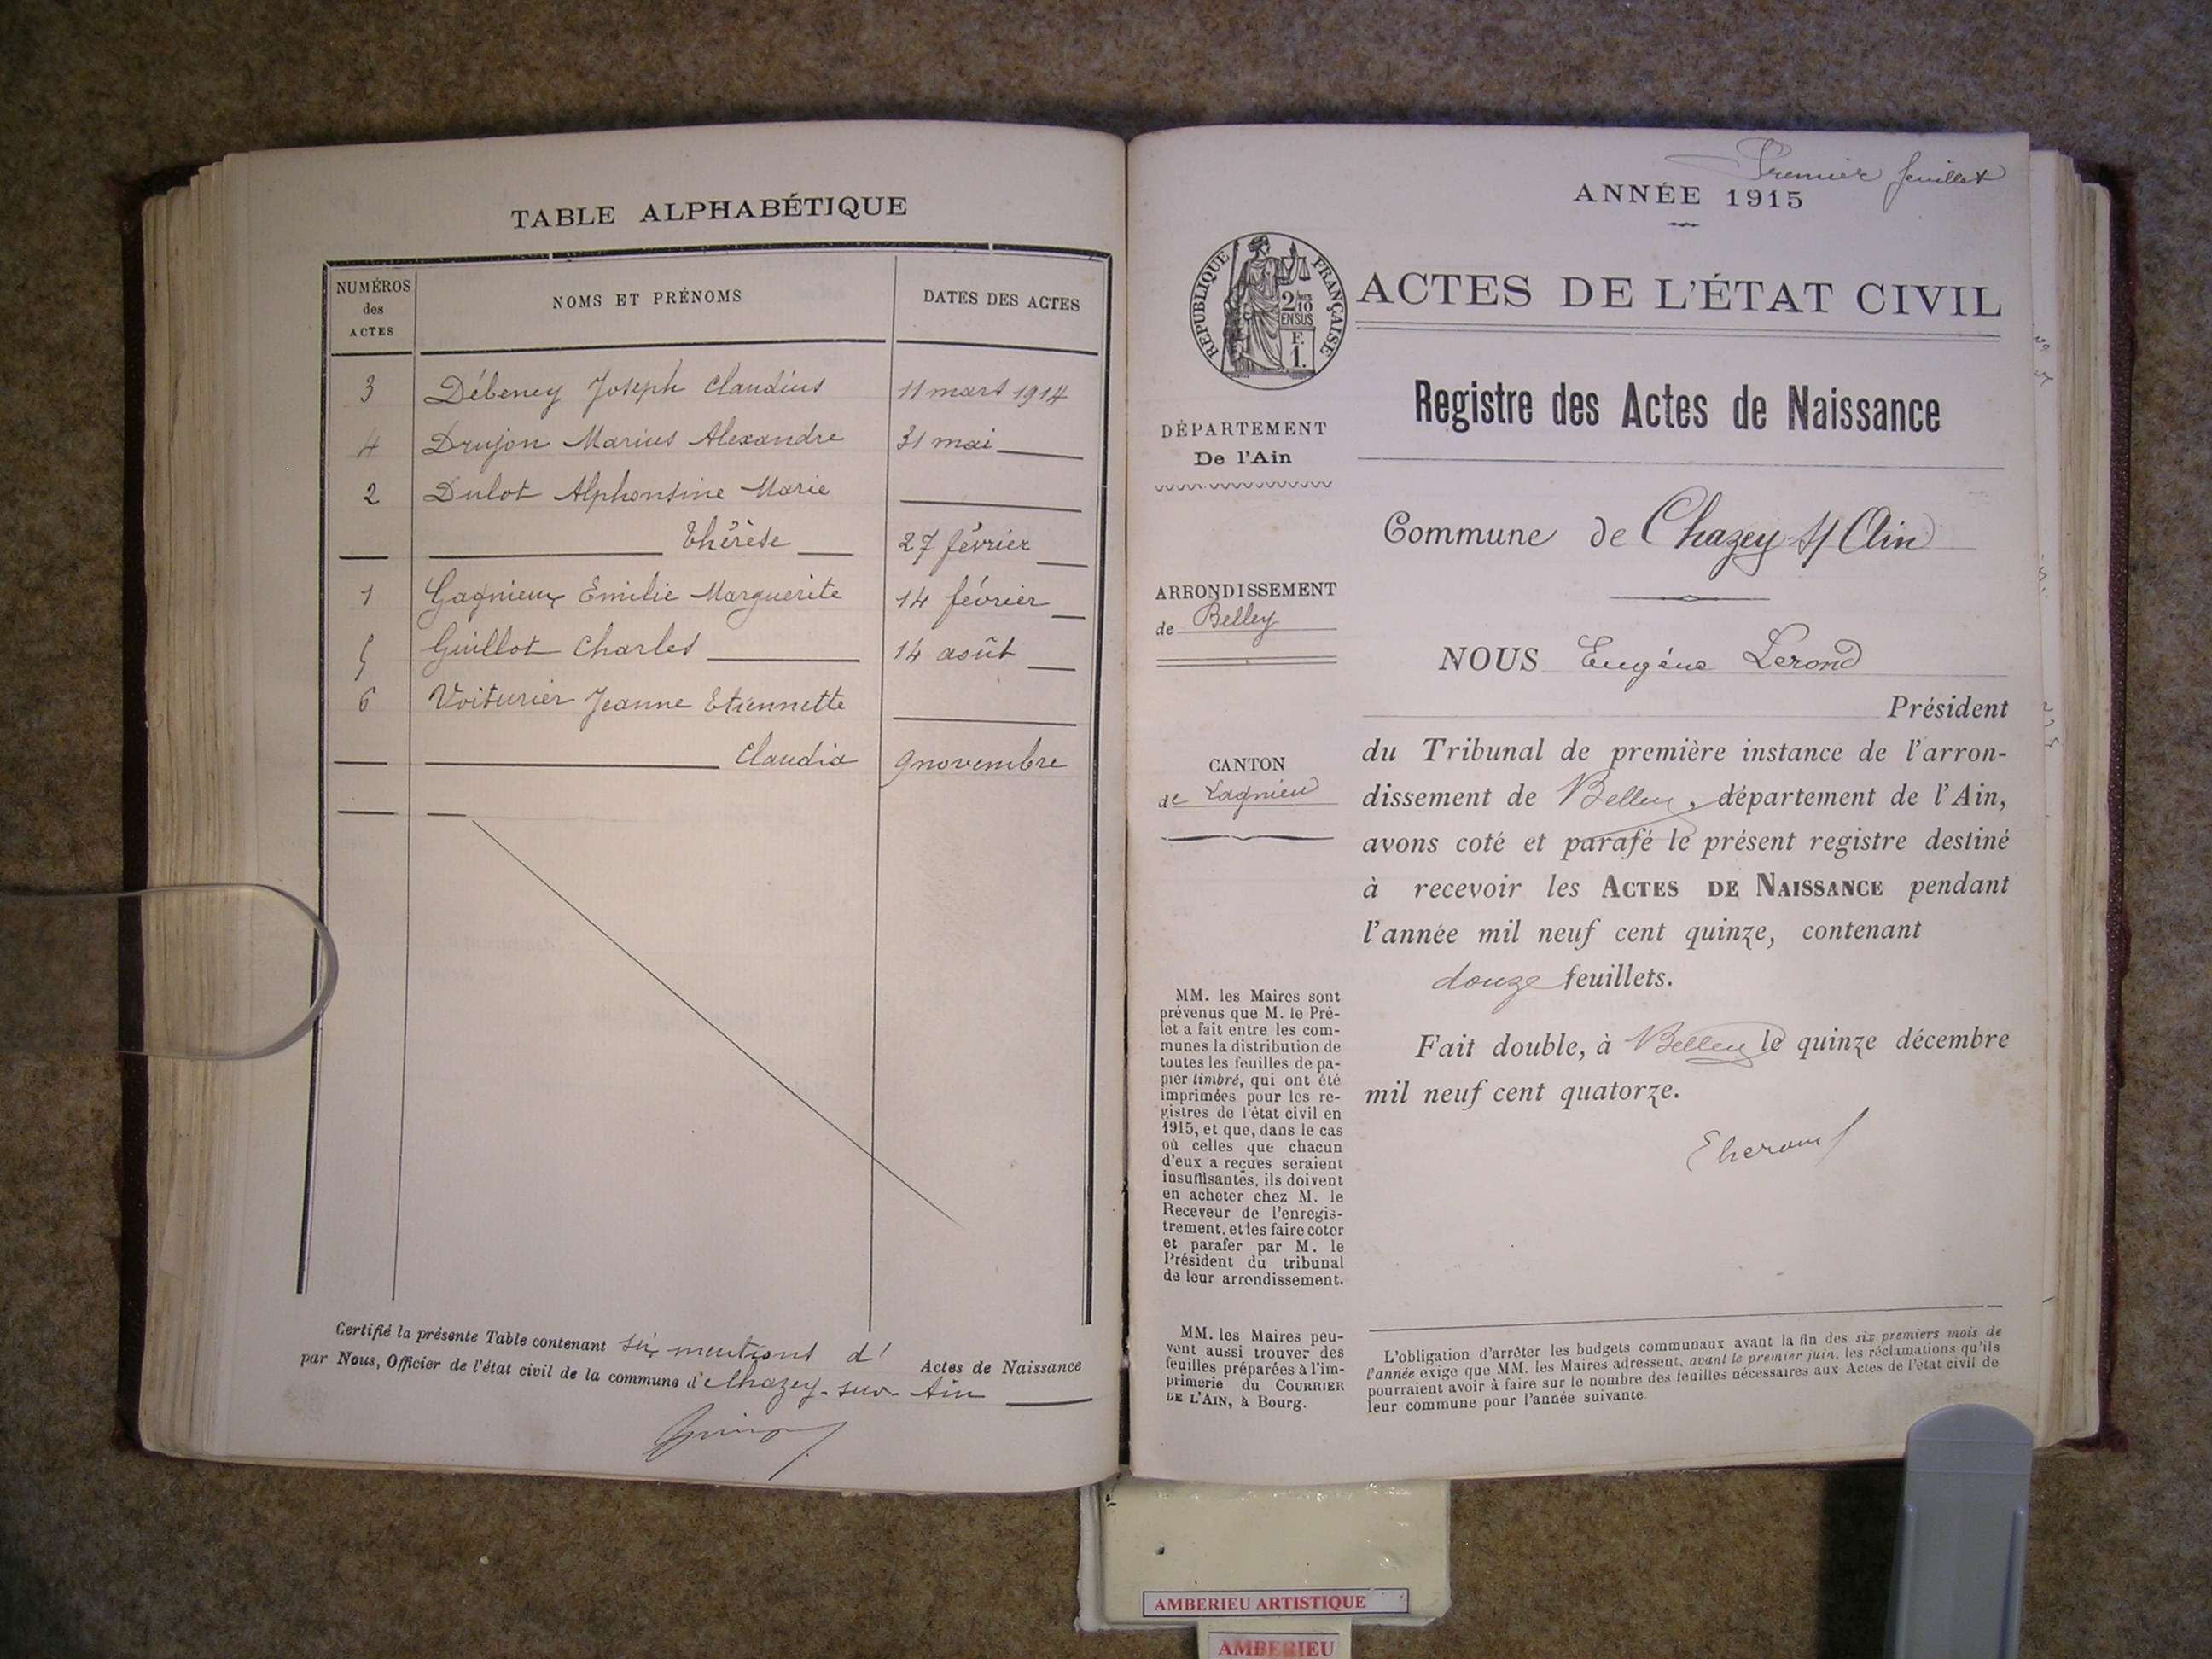 TABLE ALPHABÉTIQUE
NUMÉROS des ACTES
NOMS ET PRÉNOMS
DATES DES ACTES
3 Débeney Joseph Claudius 11 mars 1914
4 Drujon Marius Alexandre 31 mai
2 Dulot Alphonsine Marie
Thérèse 27 février
1 Gagnieux Emilie Marguerite 14 février
5 Guillot Charles 14 août
6 Voiturier Jeanne Etiennette
Claudia 9 novembre
Certifié la présente Table contenant six mentions d' Actes de Naissance
par Nous, Officier de l'état civil de la commune d'e Chazey-sur-Ain
Premier feuillet
ANNÉE 1915
RÉPUBLIQUE FRANÇAISE
2/10
EN SUS
F.
1.
ACTES DE L'ÉTAT CIVIL
Registre des Actes de Naissance
DÉPARTEMENT
De l'Ain
Commune de Chazey s/ Ain
ARRONDISSEMENT
de Belley
CANTON
de Lagnieu
NOUS Eugène Lerond
Président
du Tribunal de première instance de l'arron-
dissement de Belley, département de l'Ain,
avons coté et parafé le présent registre destiné
à recevoir les ACTES DE NAISSANCE pendant
l'année mil neuf cent quinze, contenant
douze feuillets.
Fait double, à Belley le quinze décembre
mil neuf cent quatorze.
MM. les Maires sont
prévenus que M. le Pré-
fet a fait entre les com-
munes la distribution de
toutes les feuilles de pa-
pier timbré, qui ont été
imprimées pour les re-
gistres de l'état civil en
1915, et que, dans le cas
où celles que chacun
d'eux a reçues seraient
insuffisantes, ils doivent
en acheter chez M. le
Receveur de l'enregis-
trement, et les faire coter
et parafer par M. le
Président du tribunal
de leur arrondissement.
MM. les Maires peu-
vent aussi trouver des
feuilles préparées à l'im-
primerie du COURRIER
DE L'AIN, à Bourg.
L'obligation d'arrêter les budgets communaux avant la fin des six premiers mois de
l'année exige que MM. les Maires adressent, avant le premier juin, les réclamations qu'ils
pourraient avoir à faire sur le nombre des feuilles nécessaires aux Actes de l'état civil de
leur commune pour l'année suivante
AMBERIEU ARTISTIQUE
AMBERIEU